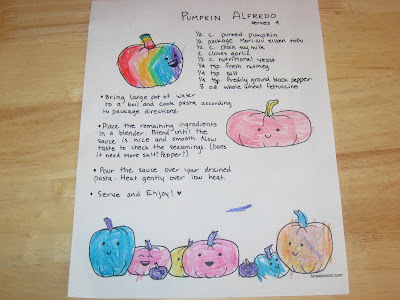 Pumpkin Alfredo
serves 4
½ c. pureed pumpkin
½ package Mori-nu silken tofu
½ c. plain soy milk
2 cloves garlic
½ c. nutritional yeast
¼ tsp. fresh nutmeg
¼ tsp. salt
¼ tsp. freshly ground black pepper
8 oz whole wheat fettuccine
• Bring large pot of water
to a boil and cook pasta according
to package directions.
• Place the remaining ingredients
in a blender. Blend until the
sauce is nice and smooth. Now
taste to check the seasonings. (Does
it need more salt? Pepper?)
• Pour the sauce over your drained
pasta. Heat gently over low heat.
• Serve and Enjoy! ♥